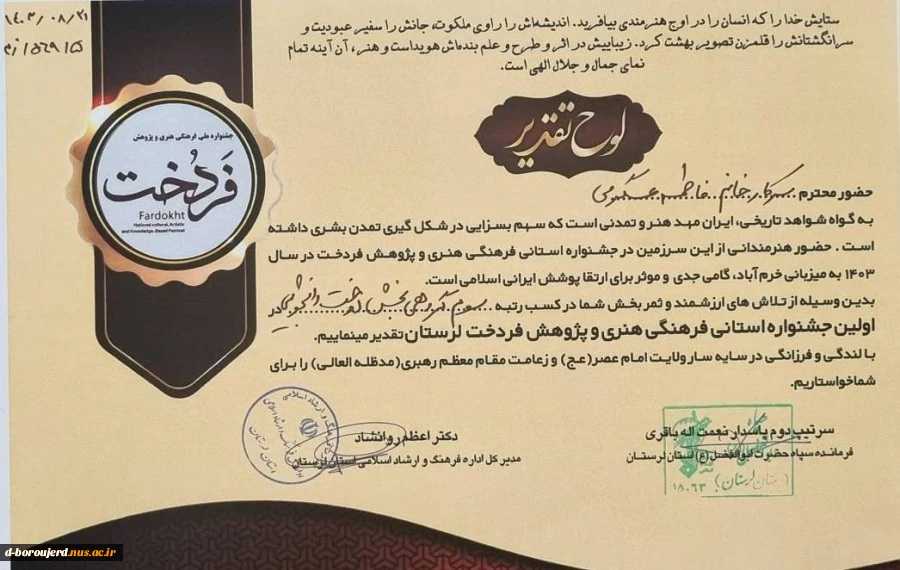 ۱۴۰۳/۰۸/۲۱
ستایش خدا را که انسان را در اوج هنرمندی بیافرید. اندیشه‌اش را راوی ملکوت، جانش را سفیر عبودیت و
سرانگشتانش را قلمزن تصویر بهشت کرد. زیباییش در اثر و طرح و علم بنده‌اش هویداست و هنر، آن آینه تمام
نمای جمال و جلال الهی است.
جشنواره ملی فرهنگی هنری و پژوهش
فَردُخت
Fardokht
National cultural, Artistic
and Knowledge-Based Festival
لوح تقدیر
حضور محترم سرکار خانم فاطمه
به گواه شواهد تاریخی، ایران مهد هنر و تمدنی است که سهم بسزایی در شکل گیری تمدن بشری داشته
است . حضور هنرمندانی از این سرزمین در جشنواره استانی فرهنگی هنری و پژوهش فردخت در سال
۱۴۰۳ به میزبانی خرم آباد، گامی جدی و موثر برای ارتقا پوشش ایرانی اسلامی است.
بدین وسیله از تلاش های ارزشمند و ثمر بخش شما در کسب رتبه سوم گروهی بخش دوخت دانشجویی در
اولین جشنواره استانی فرهنگی هنری و پژوهش فردخت لرستان تقدیر مینماییم.
بالندگی و فرزانگی در سایه سار ولایت امام عصر(عج) و زعامت مقام معظم رهبری(مدظله العالی) را برای
شما خواستاریم.
سرتیپ دوم پاسدار نعمت اله باقری
فرمانده سپاه حضرت ابوالفضل(ع) استان لرستان
(استان لرستان)
۱۸۰۶۳
دکتر اعظم روانشاد
مدیر کل اداره فرهنگ و ارشاد اسلامی استان لرستان
d-boroujerd.nus.ac.ir